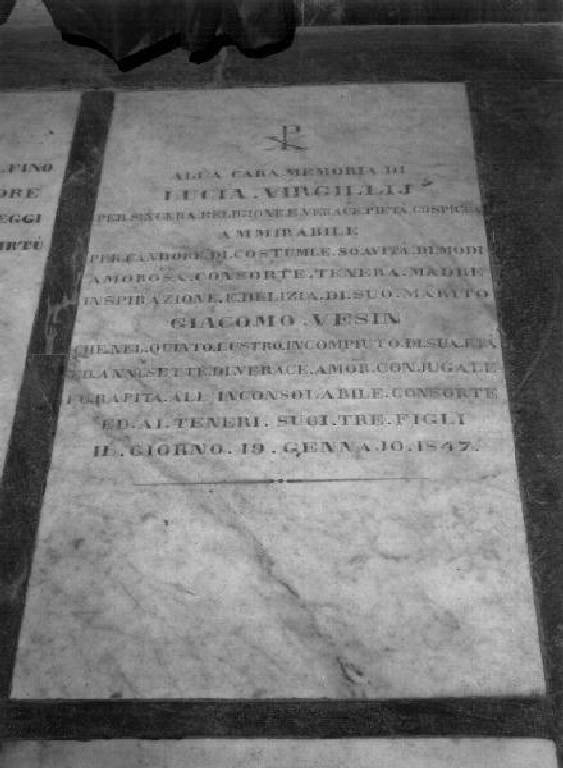 PINO
ORE
EGGI
IRTÙ
ALLA CARA MEMORIA DI
LUCIA . VIRGILLIJ
PER SINCERA RELIGIONE E VERACE PIETÀ COSPICUA
AMMIRABILE
PER CANDORE . DI COSTUMI E . SOAVITÀ . DI MODI
AMOROSA . CONSORTE . TENERA . MADRE
INSPIRAZIONE . E DELIZIA . DI SUO . MARITO
GIACOMO . VESIN
CHE . NEL . QUINTO . LUSTRO . INCOMPIUTO . DI SUA . ETÀ
ED . ANNI . SETTE . DI VERACE . AMOR . CONJUGALE
FU RAPITA . ALL' INCONSOLABILE . CONSORTE
ED . AI . TENERI . SUOI . TRE . FIGLI
IL . GIORNO . 19 . GENNAJO . 1847 .